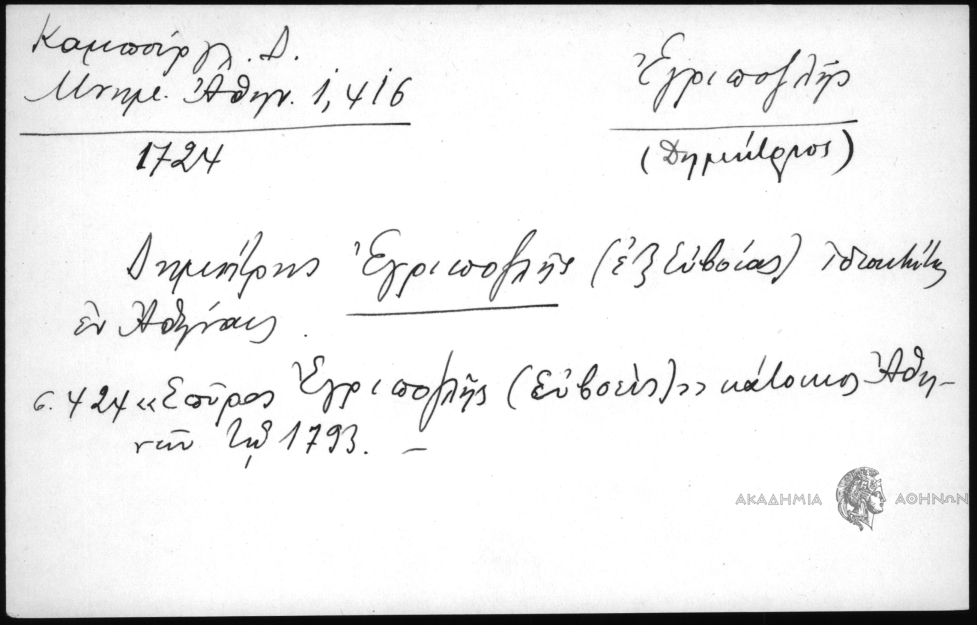 Καμπούρογλ. Δ.
Μνημ. Ἀθην. 1, 416
1724
Ἐγριποζλῆς
(Δημήτριος)
Δημήτρης Ἐγριποζλῆς (ἐξ Εὐβοίας) ἰδιοκτήτης
ἐν Ἀθήναις.
σ. 424 «Σπῦρος Ἐγριποζλῆς (Εὐβοεὺς)» κάτοικος Ἀθη-
νῶν τῷ 1793. –
ΑΚΑΔΗΜΙΑ ΑΘΗΝΩΝ